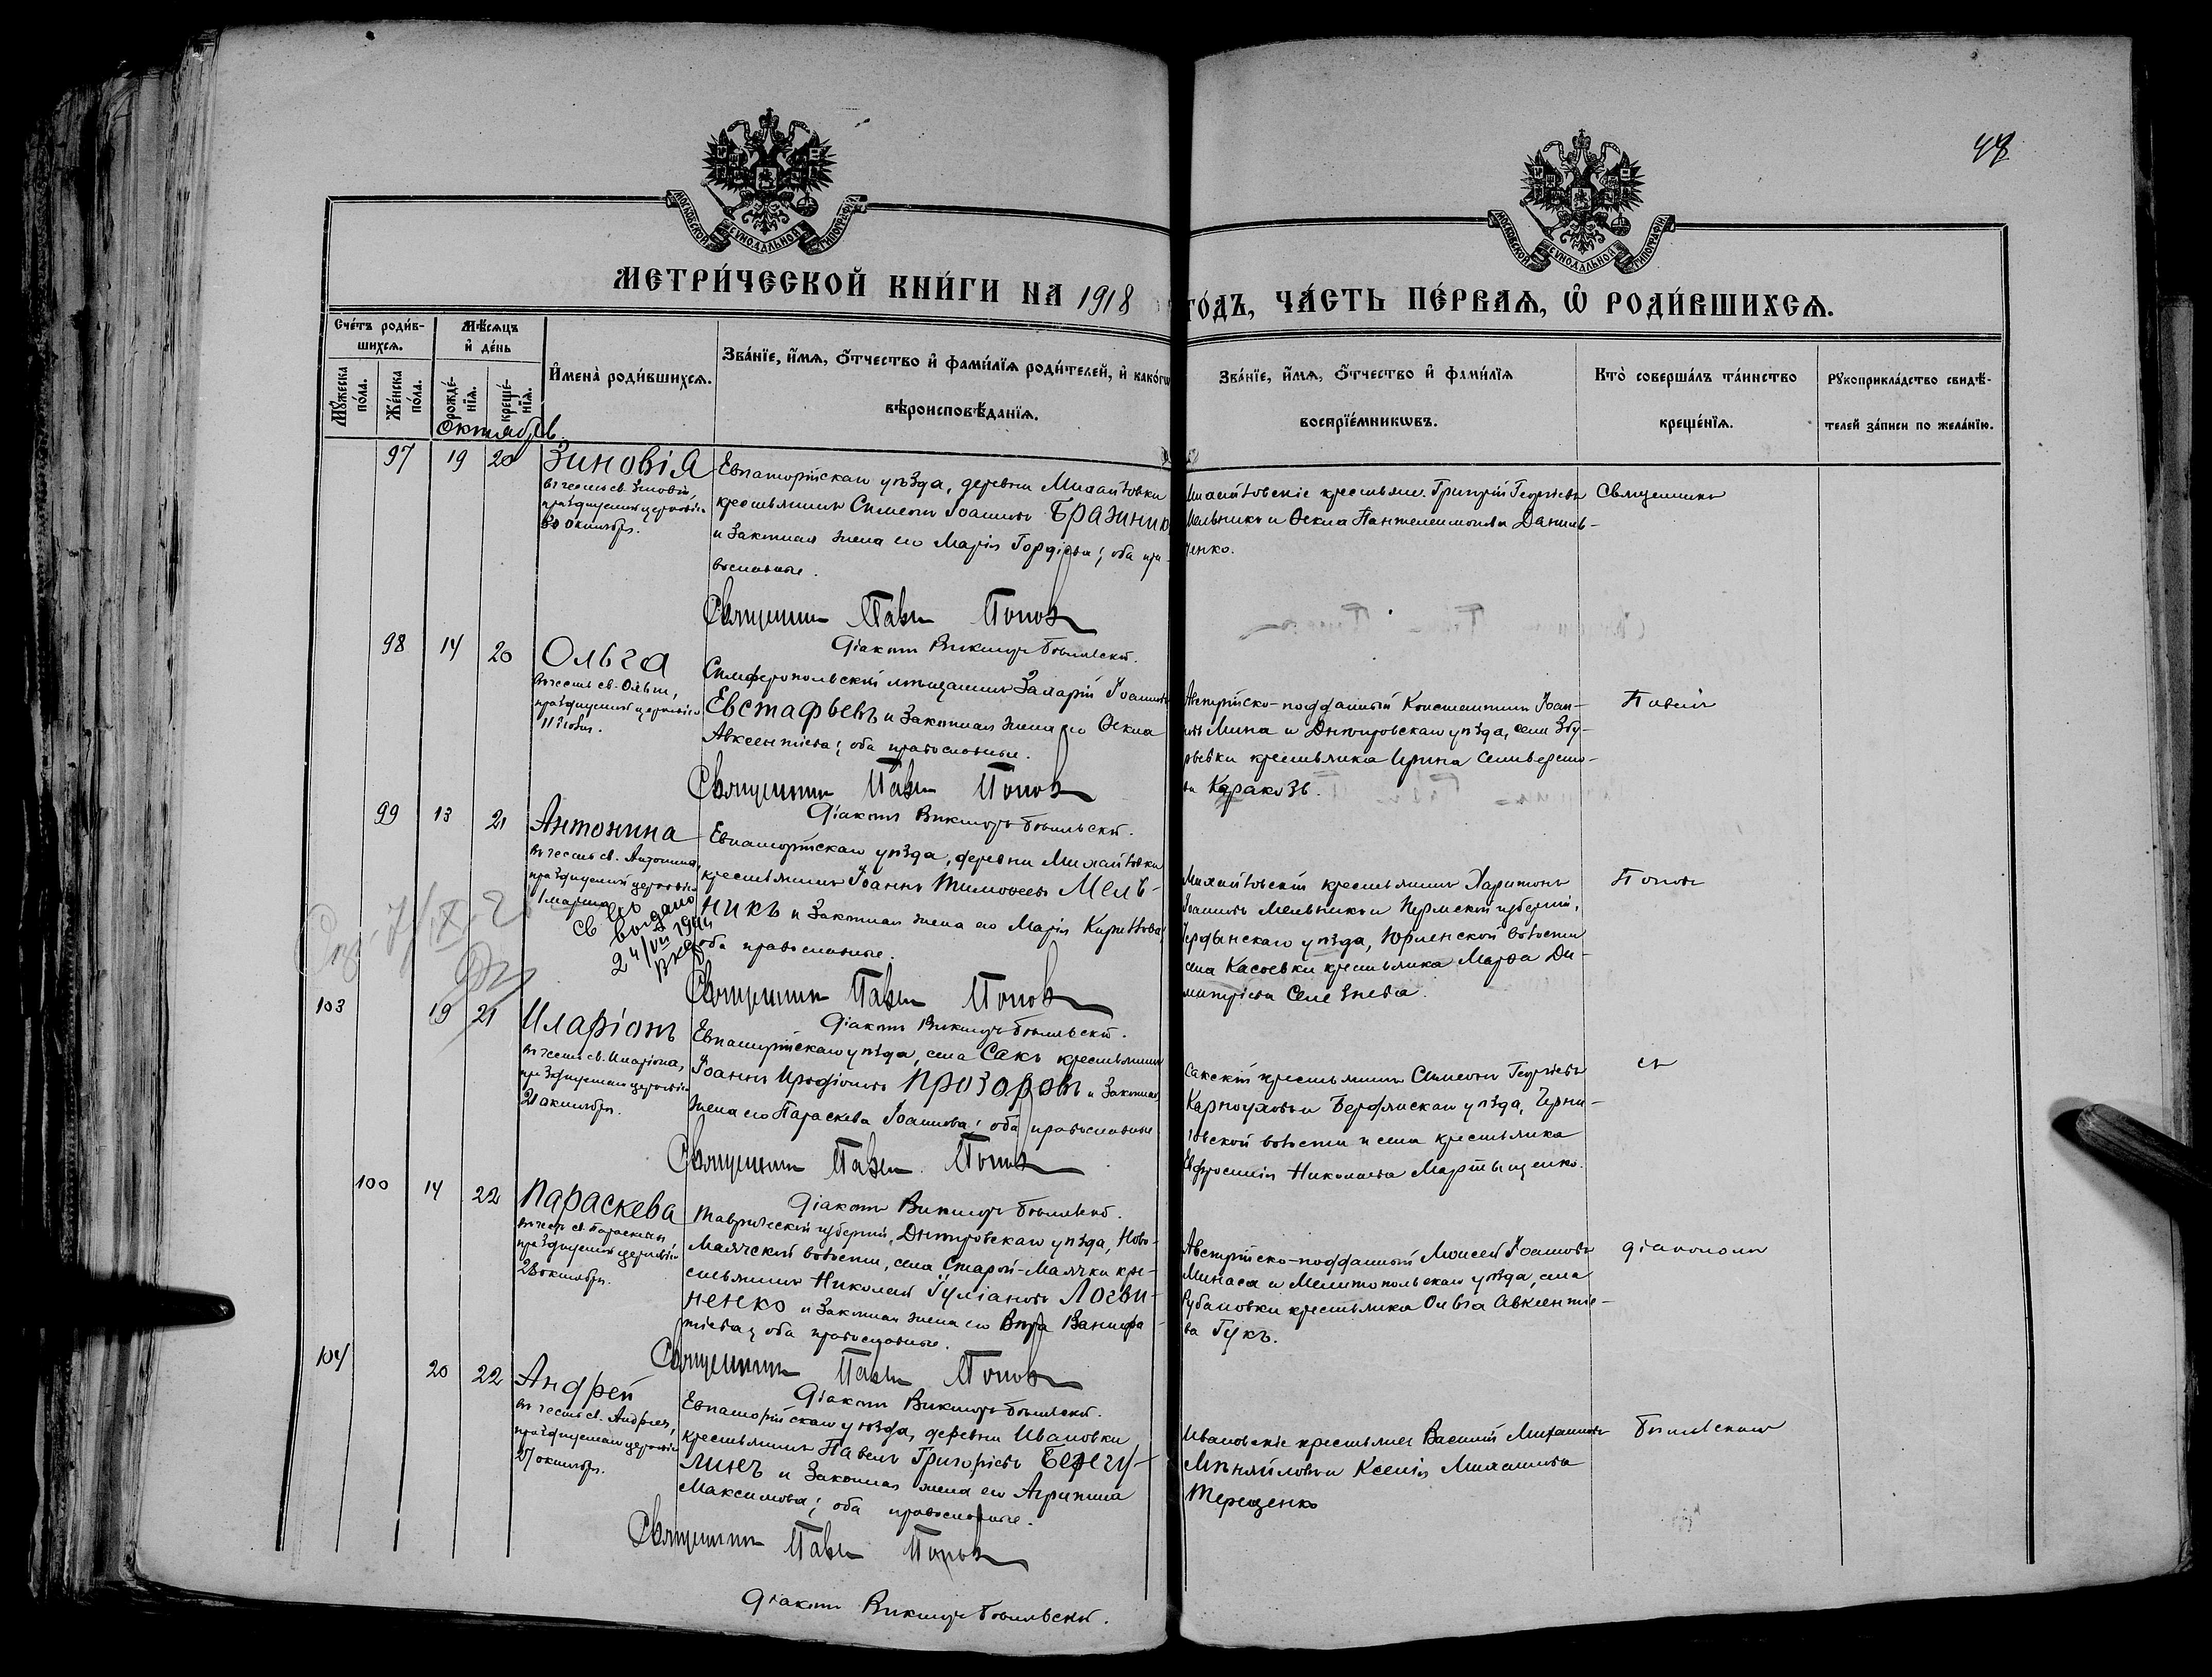 48
МОСКОВСКОЙ СѴНОДАЛЬНОЙ ТИПОГРАФІИ
МОСКОВСКОЙ СѴНОДАЛЬНОЙ ТИПОГРАФІИ
МЕТРИ́ЧЕСКОЙ КНИ́ГИ НА 1918 ГО́ДЪ, ЧА́СТЬ ПЕ́РВАѦ, Ѡ РОДИ́ВШИХСѦ.
Сче́тъ роди́в-
шихсѧ.
Мѣ́сѧцъ
и де́нь
Мꙋ́жеска
по́ла.
Же́нска
по́ла.
рожде́-
нїѧ.
креще́-
нїѧ.
И҆мена̀ роди́вшихсѧ.
Зва́нїе, и҆́мѧ, ѻ҆́тчество и҆ фами́лїѧ роди́телей, и҆ како́гѡ
вѣроисповѣ́данїѧ.
Зва́нїе, и҆́мѧ, ѻ҆́тчество и҆ фами́лїѧ
воспрїе́мникѡвъ.
Кто̀ соверша́лъ та́инство
креще́нїѧ.
Рꙋкоприкла́дство свидѣ́-
телей за́писи по жела́нїю.
Октябрь.
97 19 20
Зиновія
въ честь св. Зиновіи,
празднуемой церковію
30 октября.
Евпаторійскаго уѣзда, деревни Михайловки
крестьянинъ Симеонъ Іоанновъ Бражник
и законная жена его Марія Гордіева; оба пра-
вославные.
Священникъ Павелъ Поповъ
Діаконъ Викторъ
Михайловскіе крестьяне: Григорій Георгіевъ
Мельникъ и Ѳекла Пантелеимонова Даниль-
ченко.
Священникъ
98 14 20
Ольга
въ честь св. Ольги,
празднуемой церковію
11 іюля.
Симферопольскій мѣщанинъ Захарій Іоанновъ
Евстафьевъ и законная жена его Ѳекла
Авксентіева; оба православные.
Священникъ Павелъ Поповъ
Діаконъ Викторъ
Австрійско-подданный Константинъ Іоан-
новъ Мина и Днѣпровскаго уѣзда, села Збу-
рьевки крестьянка Ирина Селиверсто-
ва Каракозъ.
Павелъ
99 13 21
Антонина
въ честь св. Антонины,
празднуемой церковію
1 марта.
Св во выдано
24/VII 1941
Евпаторійскаго уѣзда, деревни Михайловки
крестьянинъ Іоаннъ Тимоѳеевъ Мель-
никъ и законная жена его Марія Кириллова;
оба православные.
Священникъ Павелъ Поповъ
Діаконъ Викторъ
Михайловскій крестьянинъ Харитонъ
Іоанновъ Мельникъ и Пермской губерніи,
Чердынскаго уѣзда, Юрлинской волости
села Касоевки крестьянка Марѳа Ди-
митріева Селезнева.
Поповъ
103 19 21
Иларіонъ
въ честь св. Иларіона,
празднуемаго церковію
21 октября.
Евпаторійскаго уѣзда, села Сакъ крестьянинъ
Іоаннъ Иродіоновъ Прозоровъ и законная
жена его Параскева Іоаннова; оба православные.
Священникъ Павелъ Поповъ
Діаконъ Викторъ
Сакскій крестьянинъ Симеонъ Георгіевъ
Карноуховъ и Бердянскаго уѣзда, Черни-
говской волости и села крестьянка
Евфросинія Николаева Мартыщенко.
съ
100 14 22
Параскева
въ честь св. Параскевы,
празднуемой церковію
28 октября.
Таврической губерніи, Днѣпровскаго уѣзда, Ново-
Маячской волости, села Старой-Маячки кре-
стьянинъ Николай Іуліановъ Логви-
ненко и законная жена его Вѣра Ванифа-
тіева; оба православные.
Священникъ Павелъ Поповъ
Діаконъ Викторъ
Австрійско-подданный Моисей Іоанновъ
Минаса и Мелитопольскаго уѣзда, села
Рубановки крестьянка Ольга Авксентіе-
ва Гукъ.
діакономъ
104 20 22
Андрей
въ честь св. Андрея,
празднуемаго церковію
27 октября.
Евпаторійскаго уѣзда, деревни Ивановки
крестьянинъ Павелъ Григорьевъ Берегу-
линъ и законная жена его Агрипина
Максимова; оба православные.
Священникъ Павелъ Поповъ
Діаконъ Викторъ
Ивановскіе крестьяне: Василій Михаиловъ
и Ксенія Михаилова
Терещенко